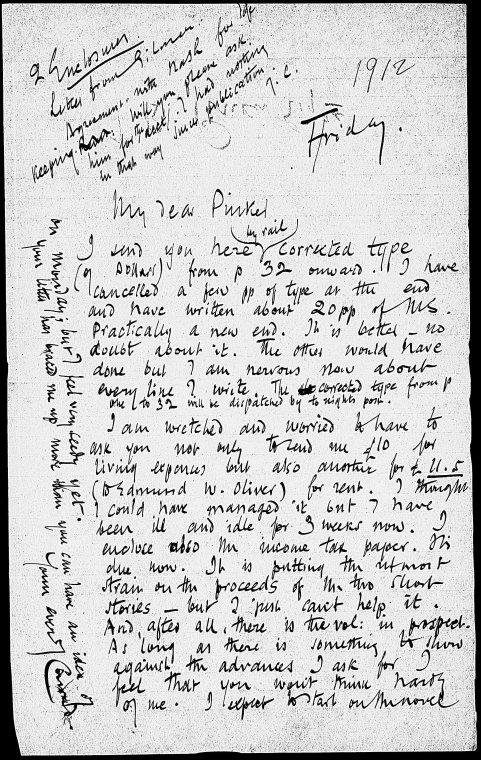 2 Enclosures
Letter from Gilman.
Agreement with Nash for safe
keeping. Will you please ask
him for the acct; I had nothing
in that way since publication.
J. C.
1912
Friday.
My dear Pinker
by rail
I send you here corrected type
(of Dollars) from p 32 onward. I have
cancelled a few pp of type at the end
and have written about 20 pp of MS.
Practically a new end. It is better – no
doubt about it. The other would have
done but I am nervous now about
every line I write. The corrected type from p
one to 32 will be dispatched by to nights post.
I am wretched and worried to have to
ask you not only to send me £10 for
living expences but also another for £11.5
(to Edmund W. Oliver) for rent. I thought
I could have managed it but I have
been ill and idle for 3 weeks now. I
enclose also the income tax paper. It's
due now. It is putting the utmost
strain on the proceeds of the two short
stories – but I just can't help it.
And after all there is the vol: in prospect.
As long as there is something to show
against the advances I ask for I
feel that you won't think hardly
of me. I expect to start on the novel
on Monday; but I feel very seedy yet.
Your letter has braced me up more than you can have an idea of
Yours ever
Conrad